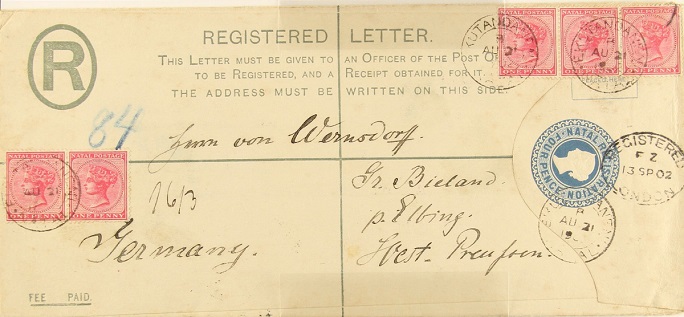 REGISTERED LETTER.
THIS LETTER MUST BE GIVEN TO AN OFFICER OF THE POST
TO BE REGISTERED, AND A RECEIPT OBTAINED FOR IT.
THE ADDRESS MUST BE WRITTEN ON THIS SIDE.
R
NATAL POSTAGE NATAL POSTAGE NATAL POSTAGE
ONE PENNY ONE PENNY ONE PENNY
AU 21
AU 21
84
Herrn von Wernsdorff.
NATAL REGISTRATION FOUR PENCE
REGISTERED
FZ
13 SP 02
LONDON
NATAL POSTAGE NATAL POSTAGE
ONE PENNY ONE PENNY
AU 21
1613
Gr. Bieland.
p. Elbing.
AU 21
Germany.
West. Preussen.
FEE PAID.